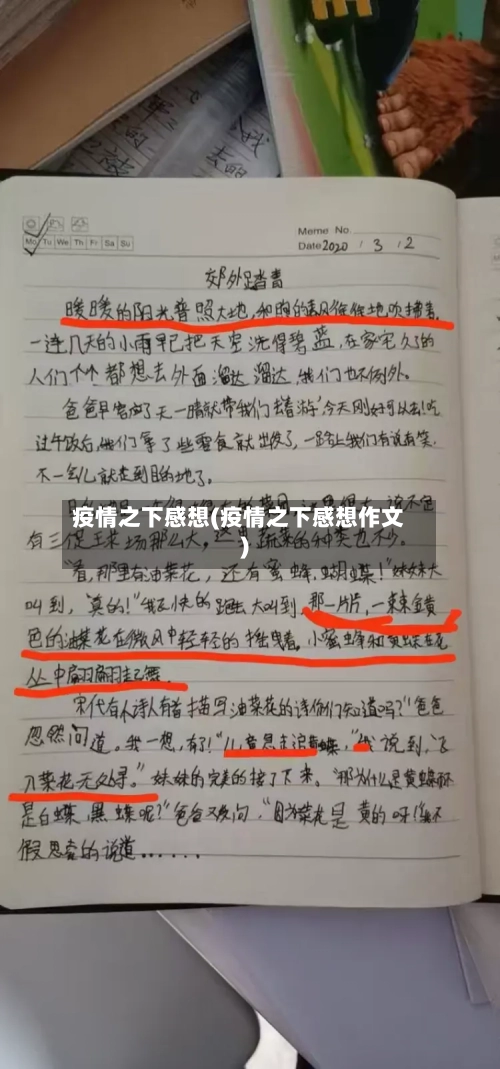 Meme No.
Mo Tu We Th Fr Sa Su
Date 2020 / 3 / 2
郊外踏青
暖暖的阳光普照大地,和煦的春风徐徐地吹拂着,
一连几天的小雨早已把天空洗得碧蓝,在家宅久了的
人们个个都想去外面溜达溜达,我们也不例外。
爸爸早客应了天一晴就带我们去踏游,今天刚好可以去!吃
过午饭后,我们拿了些零食就出发了,一路上我们有说有笑,
不一会儿就走到目的地了。
疫情之下感想(疫情之下感想作文
)
有三个足球场那么大,这里蔬菜的种类也不少。
“看,那里有油菜花,还有蜜蜂、蝴蝶!”妹妹大
叫到,“真的!”我飞快的跑去大叫到,那一片片,一束束金黄
色的油菜花在微风中轻轻的摇曳着,小蜜蜂和
丛中翩翩起舞。
宋代有个诗人有首描写油菜花的诗你们知道吗?”爸爸
忽然问道。我一想,有了!“儿童急走追黄蝶,”我说到,“飞
入菜花无处寻。”妹妹的完美的接了下来。“那为什么是黄蝶而不
是白蝶、黑蝶呢?”爸爸又反问,“因为菜花是黄的呀!”我不
假思索的说道......